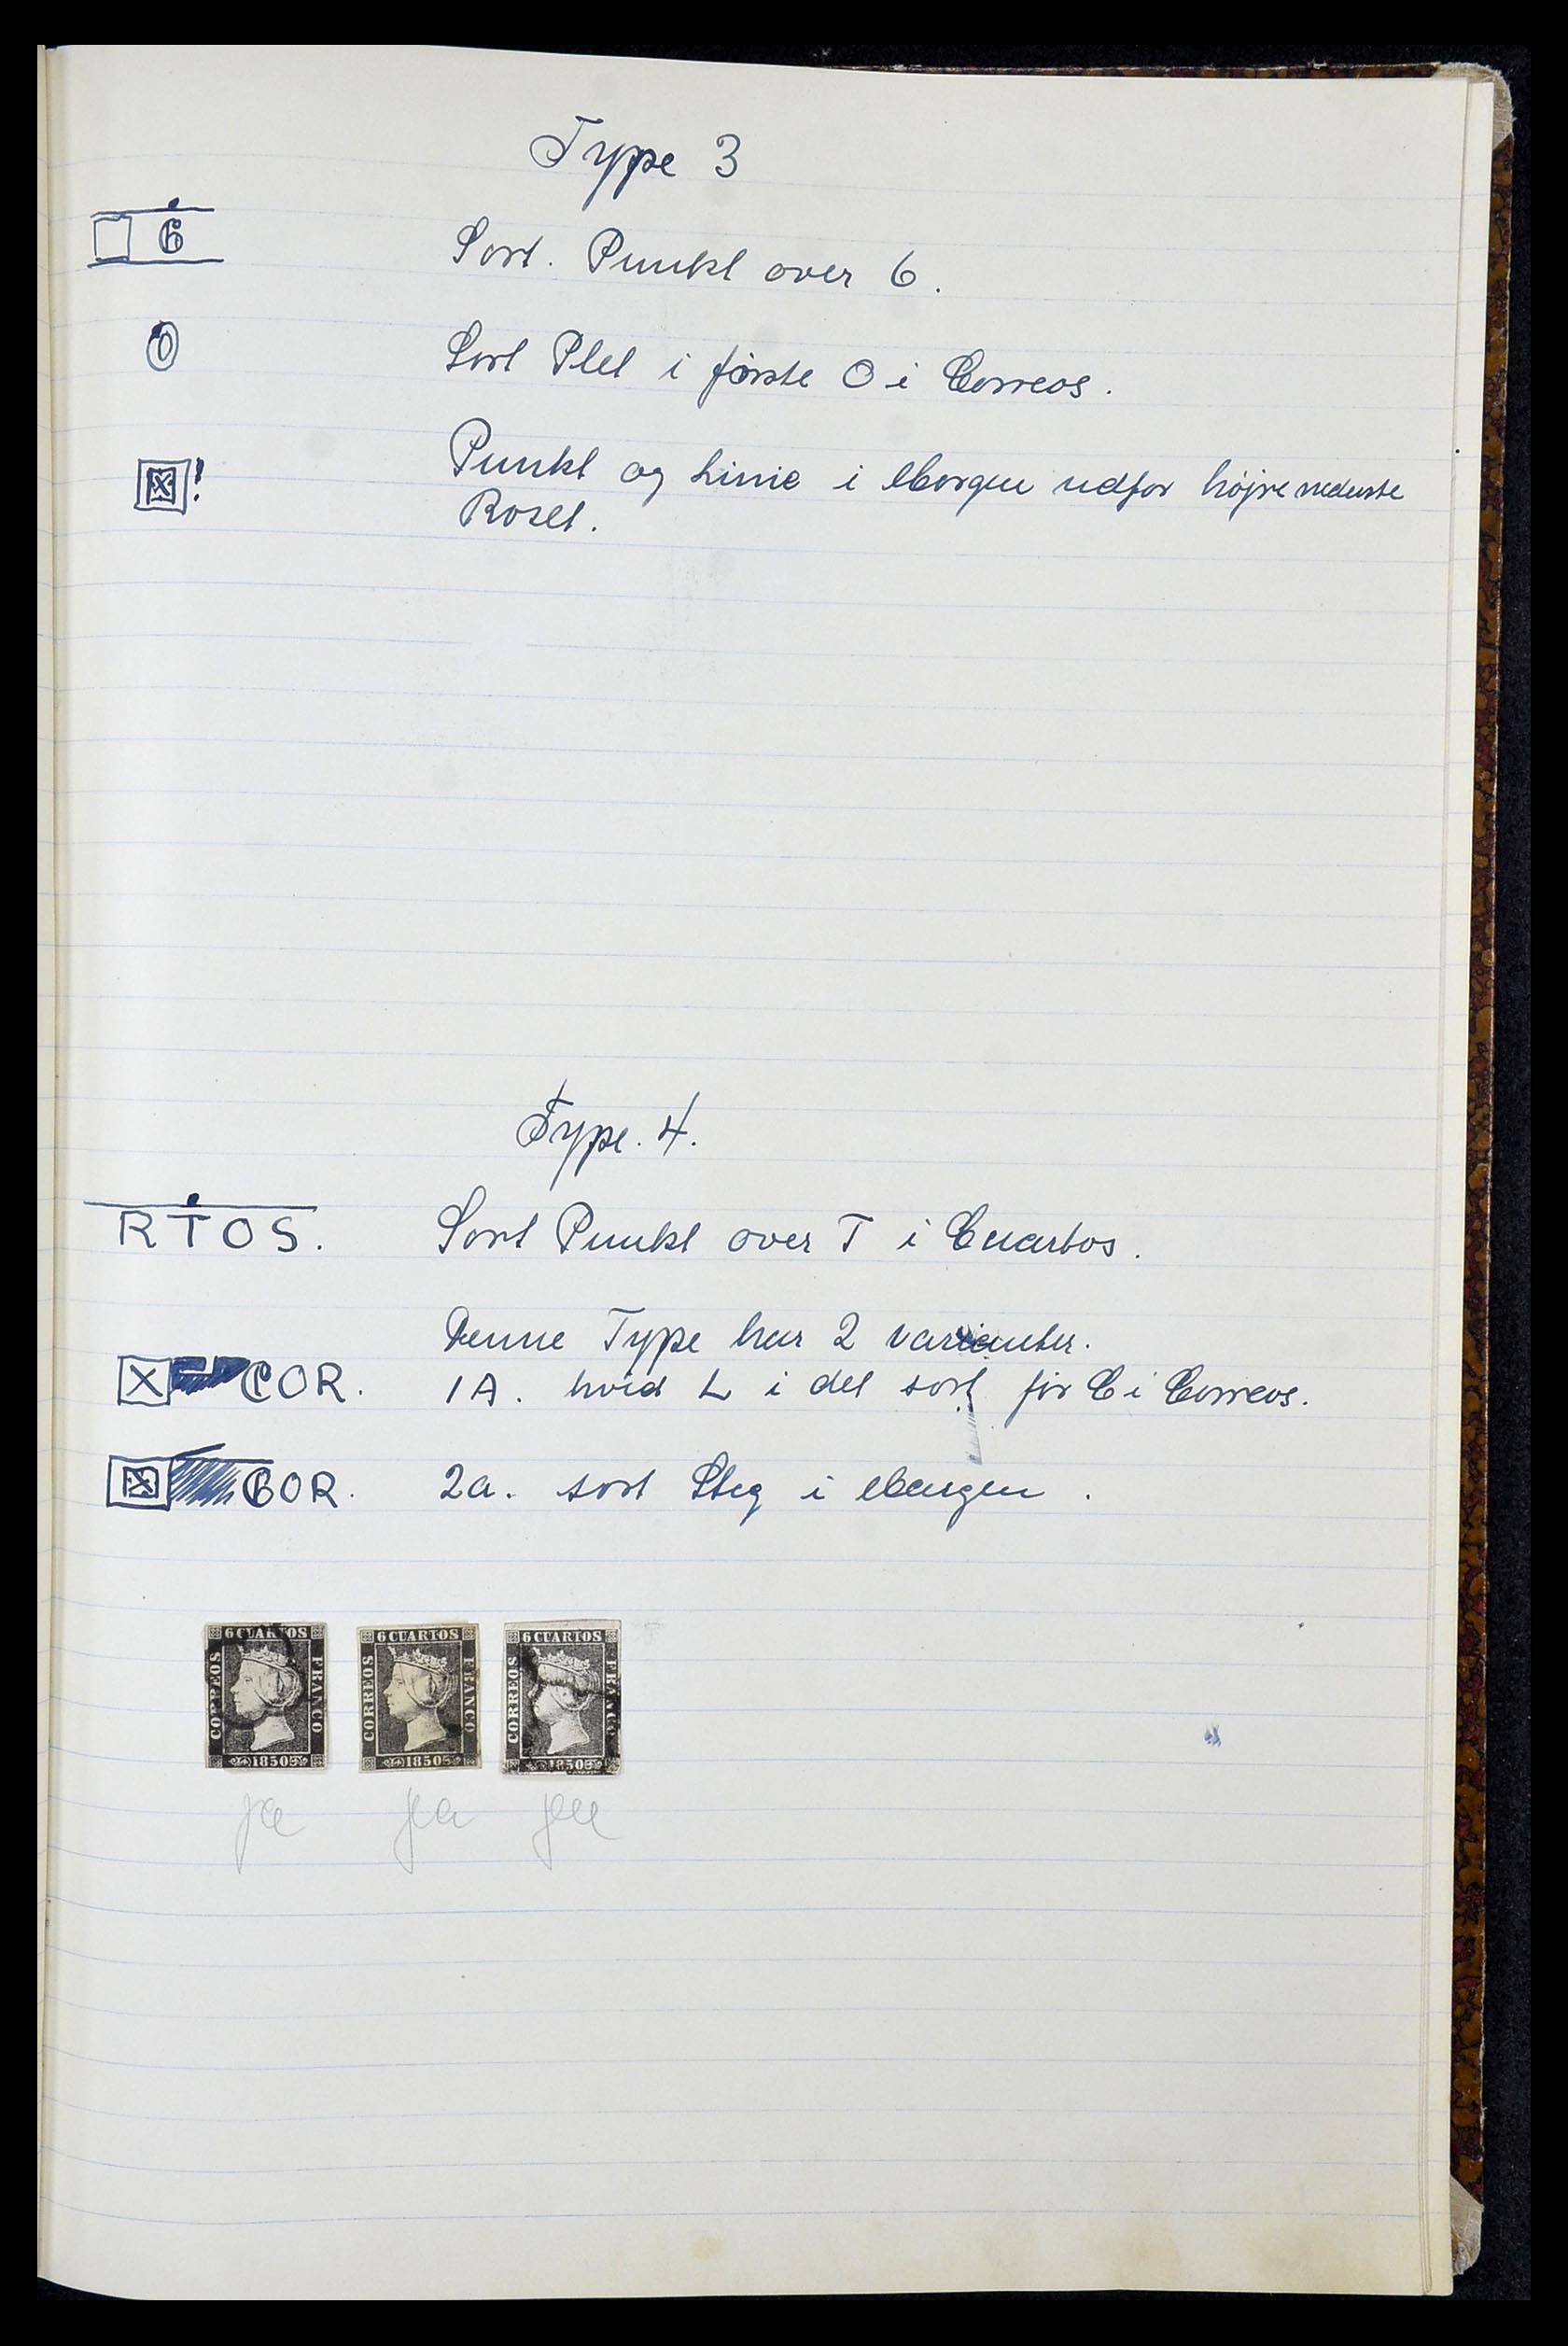 Type 3
6
Sort. Punkt over 6.
O
Sort Plet i første O i Correos.
Punkt og Linie i Margen udfor højre nederste
Roset.
Type. 4.
RTOS.
Sort Punkt over T i Cuartos.
Denne Type har 2 varianter.
COR.
1A. hvid L i det sort for C i Correos.
COR.
2a. sort Steg i Margen.
6 CUARTOS
CORREOS
FRANCO
1850
6 CUARTOS
CORREOS
FRANCO
1850
6 CUARTOS
CORREOS
FRANCO
1850